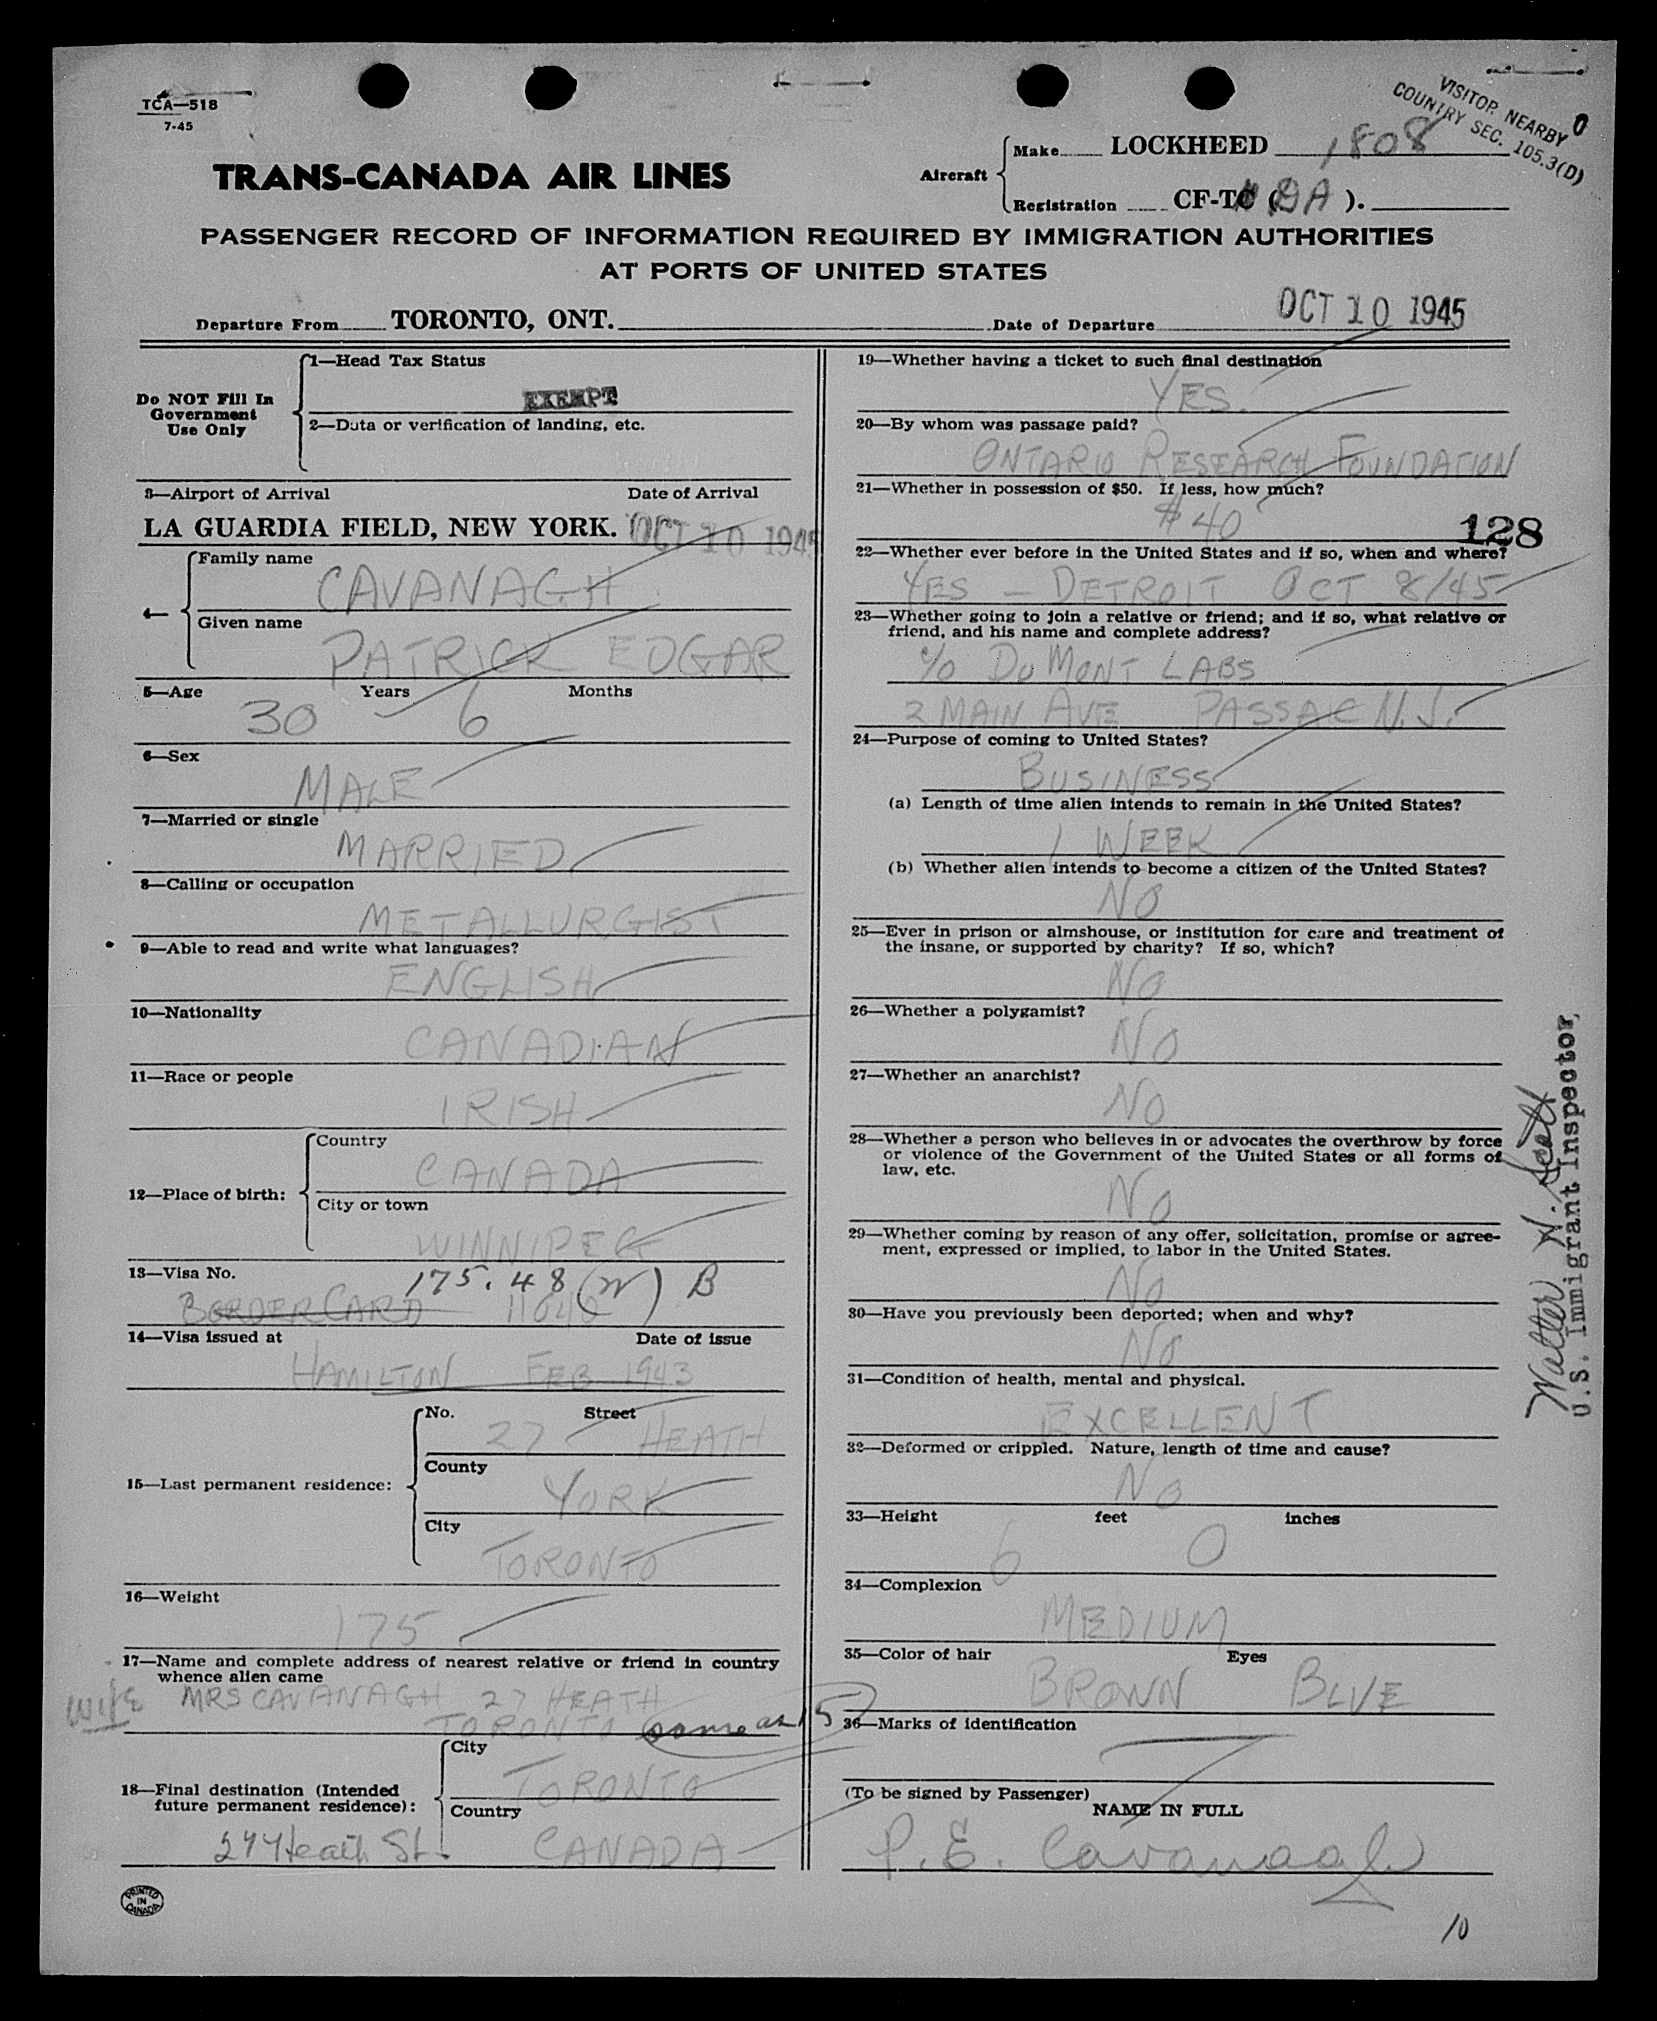 TCA—518
7-45
VISITOR NEARBY
COUNTRY SEC. 105.3(D)
0
TRANS-CANADA AIR LINES
Aircraft
Make LOCKHEED 1808
Registration CF-TC ( ).
PASSENGER RECORD OF INFORMATION REQUIRED BY IMMIGRATION AUTHORITIES
AT PORTS OF UNITED STATES
Departure From TORONTO, ONT. Date of Departure OCT 10 1945
Do NOT Fill In
Government
Use Only
1—Head Tax Status
EXEMPT
2—Data or verification of landing, etc.
3—Airport of Arrival Date of Arrival
LA GUARDIA FIELD, NEW YORK. OCT 10 1945
4—
Family name
CAVANAGH
Given name
PATRICK EDGAR
5—Age Years Months
30 6
6—Sex
MALE
7—Married or single
MARRIED
8—Calling or occupation
METALLURGIST
9—Able to read and write what languages?
ENGLISH
10—Nationality
CANADIAN
11—Race or people
IRISH
12—Place of birth:
Country
CANADA
City or town
WINNIPEG
13—Visa No.
175.48 (w) B
BORDER CARD
14—Visa issued at Date of issue
HAMILTON FEB 1943
15—Last permanent residence:
No. Street
27 HEATH
County
YORK
City
TORONTO
16—Weight
175
17—Name and complete address of nearest relative or friend in country
whence alien came
wife MRS CAVANAGH 27 HEATH
TORONTO same as 15
18—Final destination (Intended
future permanent residence):
City
TORONTO
Country
27 Heath St. CANADA
PRINTED
IN
CANADA
19—Whether having a ticket to such final destination
YES.
20—By whom was passage paid?
ONTARIO RESEARCH FOUNDATION
21—Whether in possession of $50. If less, how much?
$40
128
22—Whether ever before in the United States and if so, when and where?
YES — DETROIT OCT 8/45
23—Whether going to join a relative or friend; and if so, what relative or
friend, and his name and complete address?
c/o DU MONT LABS
2 MAIN AVE PASSAIC N.J.
24—Purpose of coming to United States?
BUSINESS
(a) Length of time alien intends to remain in the United States?
1 WEEK
(b) Whether alien intends to become a citizen of the United States?
NO
25—Ever in prison or almshouse, or institution for care and treatment of
the insane, or supported by charity? If so, which?
NO
26—Whether a polygamist?
NO
27—Whether an anarchist?
NO
28—Whether a person who believes in or advocates the overthrow by force
or violence of the Government of the United States or all forms of
law, etc.
NO
29—Whether coming by reason of any offer, solicitation, promise or agree-
ment, expressed or implied, to labor in the United States.
NO
30—Have you previously been deported; when and why?
NO
31—Condition of health, mental and physical.
EXCELLENT
32—Deformed or crippled. Nature, length of time and cause?
NO
33—Height feet inches
6 0
34—Complexion
MEDIUM
35—Color of hair Eyes
BROWN BLUE
36—Marks of identification
(To be signed by Passenger)
NAME IN FULL
P. E. Cavanagh
10
Walter N. Scott
U.S. Immigrant Inspector,